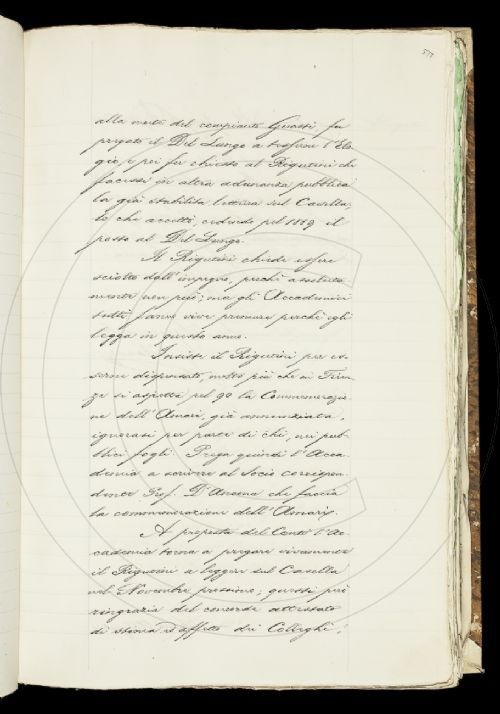 577
alla morte del compianto Guasti, fu
pregato il Del Lungo a tesserne l'Elo-
gio, e poi fu chiesto al Rigutini che
facesse in altra adunanza pubblica
la già stabilita lettura sul Casella.
Lo che accettò, cedendo pel 1889 il
posto al Del Lungo.
Il Rigutini chiede essere
sciolto dall'impegno, perchè assoluta-
mente non può; ma gli Accademici
tutti fanno vive premure perchè egli
legga in questo anno.
Insiste il Rigutini per es-
serne dispensato, molto più che in Firen-
ze si aspetta pel 90 la Commemorazio-
ne dell'Amari, già annunziata,
ignorasi per parte di chi, nei pub-
blici fogli. Prega quindi l'Acca-
demia a scrivere al Socio corrispon-
dente Prof. D'Ancona che faccia
la commemorazione dell'Amari.
A proposta del Conti l'Ac-
cademia torna a pregare vivamente
il Rigutini a leggere sul Casella
nel Novembre prossimo; questi però
ringrazia del concorde attestato
di stima e d'affetto dei Colleghi,